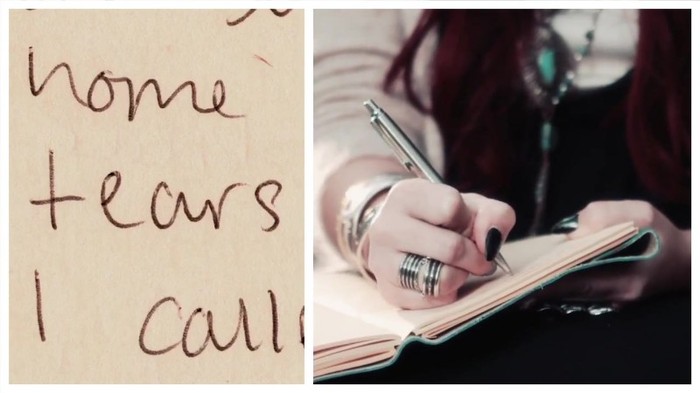 home
tears
I call